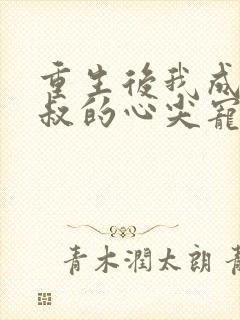 重生後我成
叔的心尖寵
青木潤太朗 青